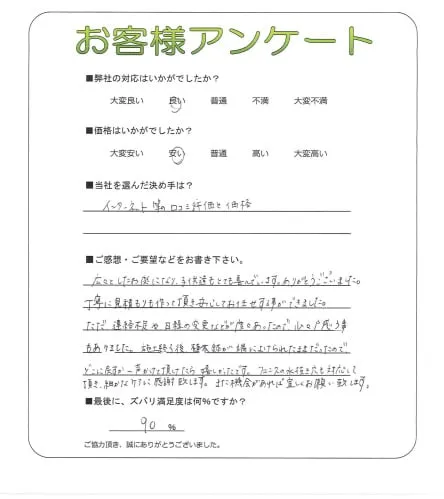 お客様アンケート
■弊社の対応はいかがでしたか?
大変良い 良い 普通 不満 大変不満
■価格はいかがでしたか?
大変安い 安い 普通 高い 大変高い
■当社を選んだ決め手は?
インターネット等の口コミ評価と価格
■ご感想・ご要望などをお書き下さい。
広々としたお庭になり、子供達もとても喜んでいます。ありがとうございました。
丁寧に見積もりも作って頂き安心してお任せする事ができました。
ただ、連絡不足や日程の変更などが度々あったので、心配に思う事
もありました。施工終了後、植木鉢が端によけられたままだったので
どこに戻すか一声かけて頂けたら嬉しかったです。フェンスの水抜き穴も対応して
頂き、細かな 感謝致します。また機会があれば宜しくお願い致します。
■最後に、ズバリ満足度は何%ですか?
90 %
ご協力頂き、誠にありがとうございました。